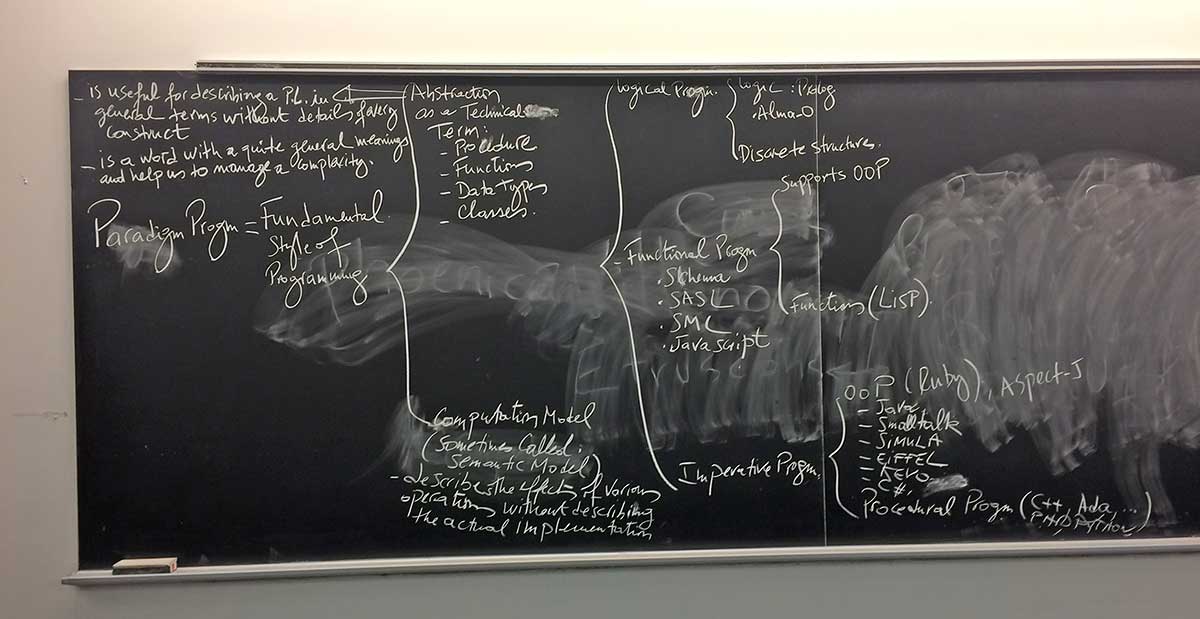 - is useful for describing a P.L. in
general terms without details of every
construct
- is a word with a quite general meanings
and help us to manage a complexity.
Paradigm Progm = Fundamental
Style of
Programming
Abstraction
as a Technical
Term:
- Procedure
- Functions
- Data Types
- Classes.
Computation Model
(Sometimes Called:
Semantic Model)
- describes the effects of various
operations without describing
the actual implementation
Logical Progm.
Logic: Prolog
. Alma-0
Discrete structures.
- Functional Progm
. Schema
. SASL
. SML
. Javascript
Supports OOP
Functions (LISP).
Imperative Progm.
OOP (Ruby), Aspect-J
- Java
- Smalltalk
- SIMULA
- EIFFEL
- C#,
Procedural Progm (C++, Ada ...
PHP, PYTHON)
Etruscans